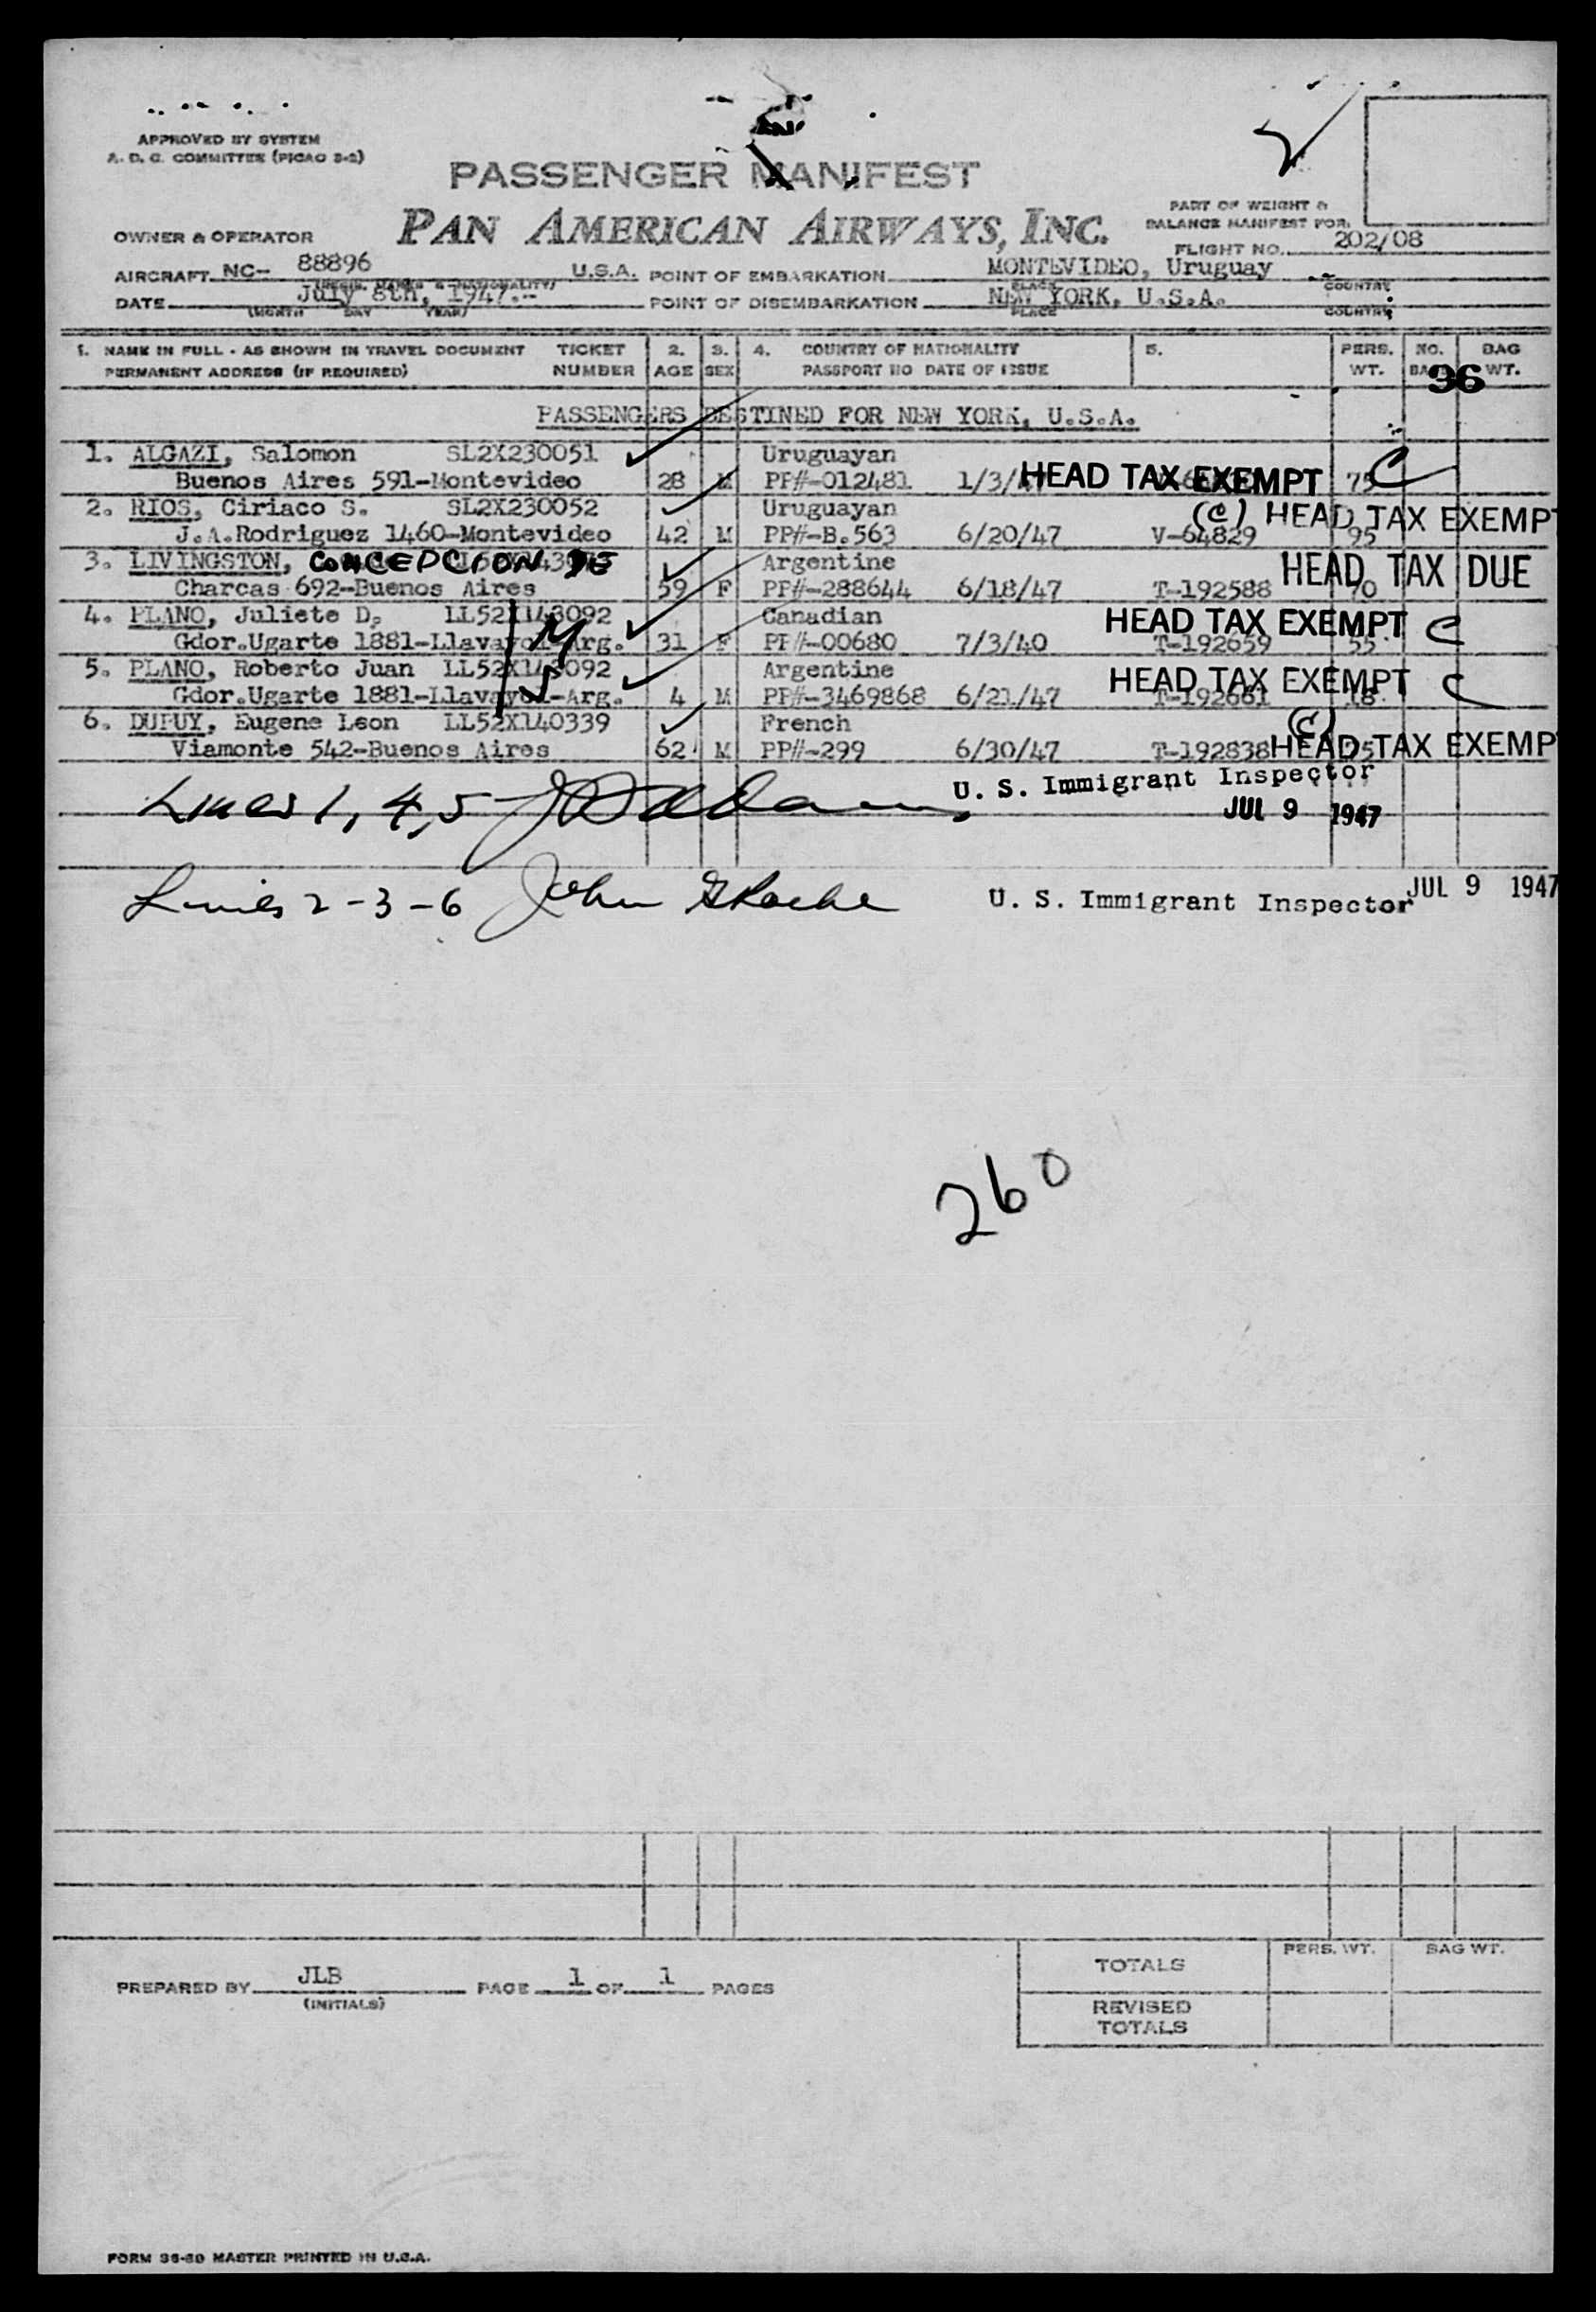 APPROVED BY SYSTEM
A. D. C. COMMITTEE (PICAO 3-2)
PASSENGER MANIFEST
PAN AMERICAN AIRWAYS, INC.
PART OF WEIGHT &
BALANCE MANIFEST FOR:
OWNER & OPERATOR
FLIGHT NO. 202/08
AIRCRAFT NC- 88896 U.S.A. POINT OF EMBARKATION MONTEVIDEO, Uruguay
(REGIS. MARKS & NATIONALITY) PLACE COUNTRY
DATE July 8th, 1947.- POINT OF DISEMBARKATION NEW YORK, U.S.A.
(MONTH DAY YEAR) PLACE COUNTRY
1. NAME IN FULL - AS SHOWN IN TRAVEL DOCUMENT TICKET 2. 3. 4. COUNTRY OF NATIONALITY 5. PERS. NO. BAG
PERMANENT ADDRESS (IF REQUIRED) NUMBER AGE SEX PASSPORT NO DATE OF ISSUE WT. WT.
96
PASSENGERS DESTINED FOR NEW YORK, U.S.A.
1. ALGAZI, Salomon SL2X230051 Uruguayan
Buenos Aires 591-Montevideo 28 M PP#-012481 HEAD TAX EXEMPT 75 C
2. RIOS, Ciriaco S. SL2X230052 Uruguayan (C) HEAD TAX EXEMPT
J.A.Rodriguez 1460-Montevideo 42 M PP#-B.563 6/20/47 V-64829 95
3. LIVINGSTON, CONCEPCION DE Argentine HEAD TAX DUE
Charcas 692-Buenos Aires 59 F PP#-288644 6/18/47 T-192588 70
4. PLANO, Juliete D. LL52X143092 Canadian HEAD TAX EXEMPT C
Gdor.Ugarte 1881-Llavayol-Arg. 31 F PP#-00680 7/3/40 T-192659 55
5. PLANO, Roberto Juan LL52X143092 Argentine HEAD TAX EXEMPT C
Gdor.Ugarte 1881-Llavayol-Arg. 4 M PP#-3469868 6/21/47 T-192661 18
6. DUPUY, Eugene Leon LL52X140339 French (C)
Viamonte 542-Buenos Aires 62 M PP#-299 6/30/47 T-192838 HEAD TAX EXEMP
Lines 1, 4, 5 U. S. Immigrant Inspector
JUL 9 1947
Lines 2-3-6 John U. S. Immigrant Inspector JUL 9 1947
260
PERS. WT. BAG WT.
TOTALS
PREPARED BY JLB PAGE 1 OF 1 PAGES
(INITIALS)
REVISED
TOTALS
FORM 36-60 MASTER PRINTED IN U.S.A.